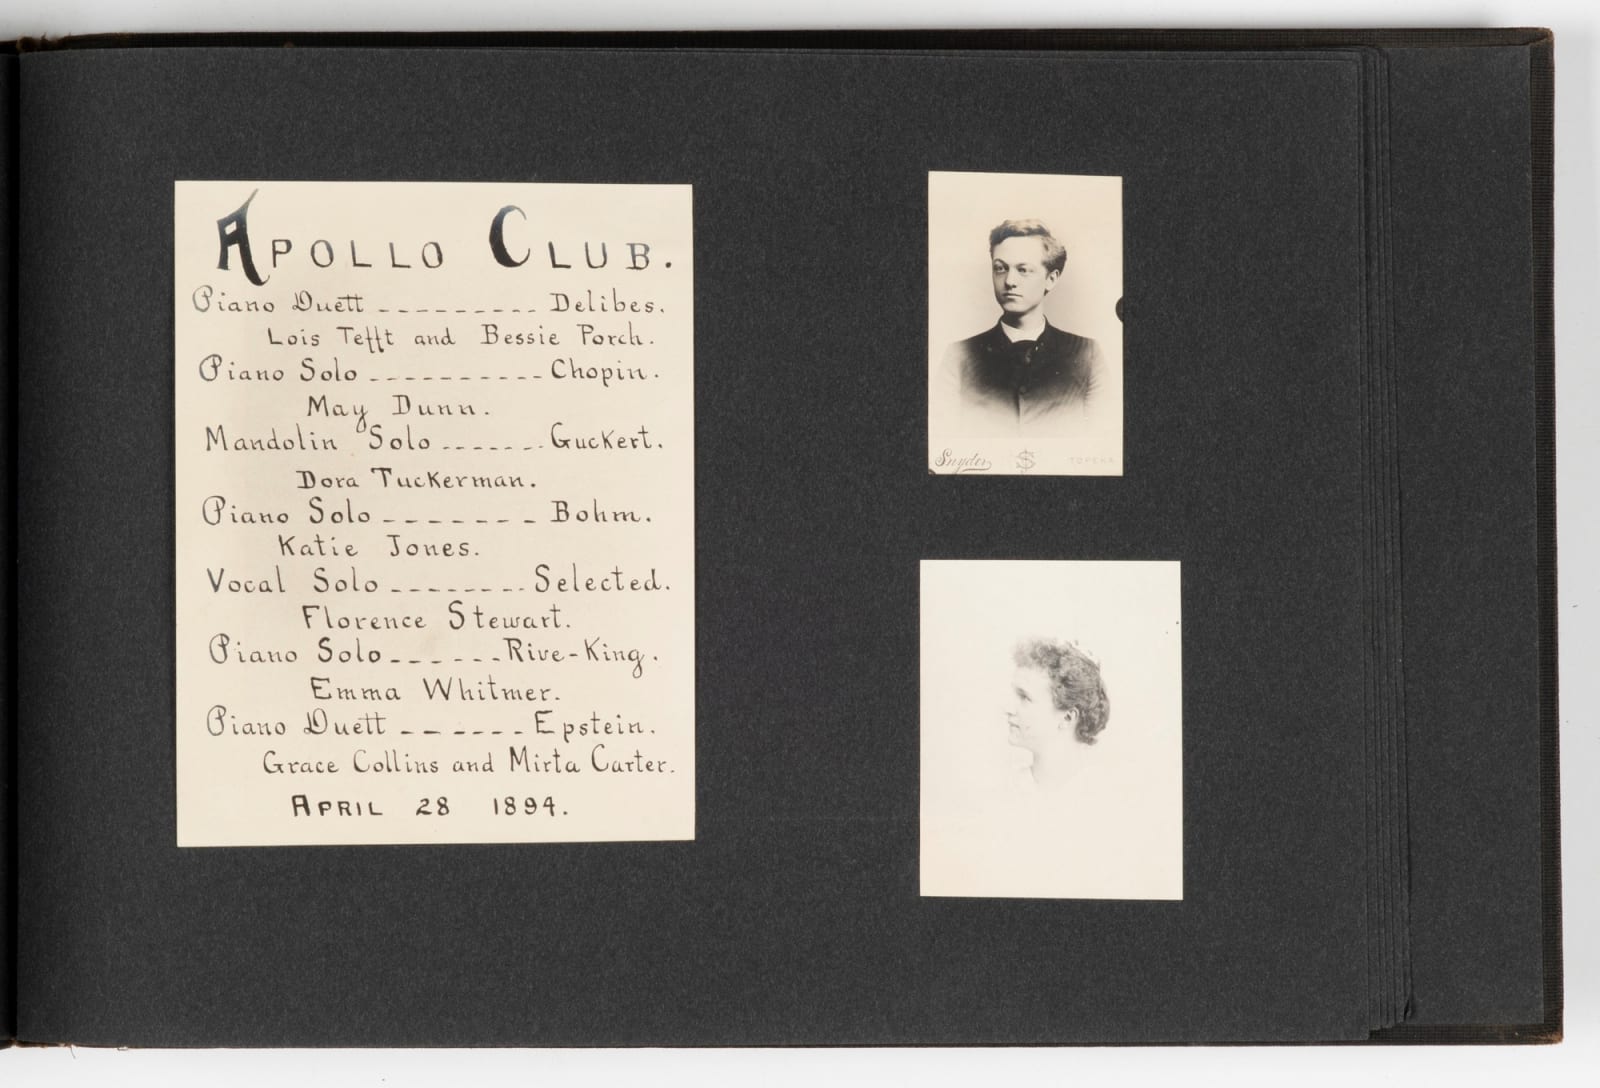 APOLLO CLUB.
Piano Duett --------- Delibes.
Lois Tefft and Bessie Porch.
Piano Solo ---------- Chopin.
May Dunn.
Mandolin Solo ------- Guckert.
Dora Tuckerman.
Piano Solo ------- Bohm.
Katie Jones.
Vocal Solo -------- Selected.
Florence Stewart.
Piano Solo ------ Rive-King.
Emma Whitmer.
Piano Duett ------ Epstein.
Grace Collins and Mirta Carter.
APRIL 28 1894.
Snyder TOPEKA